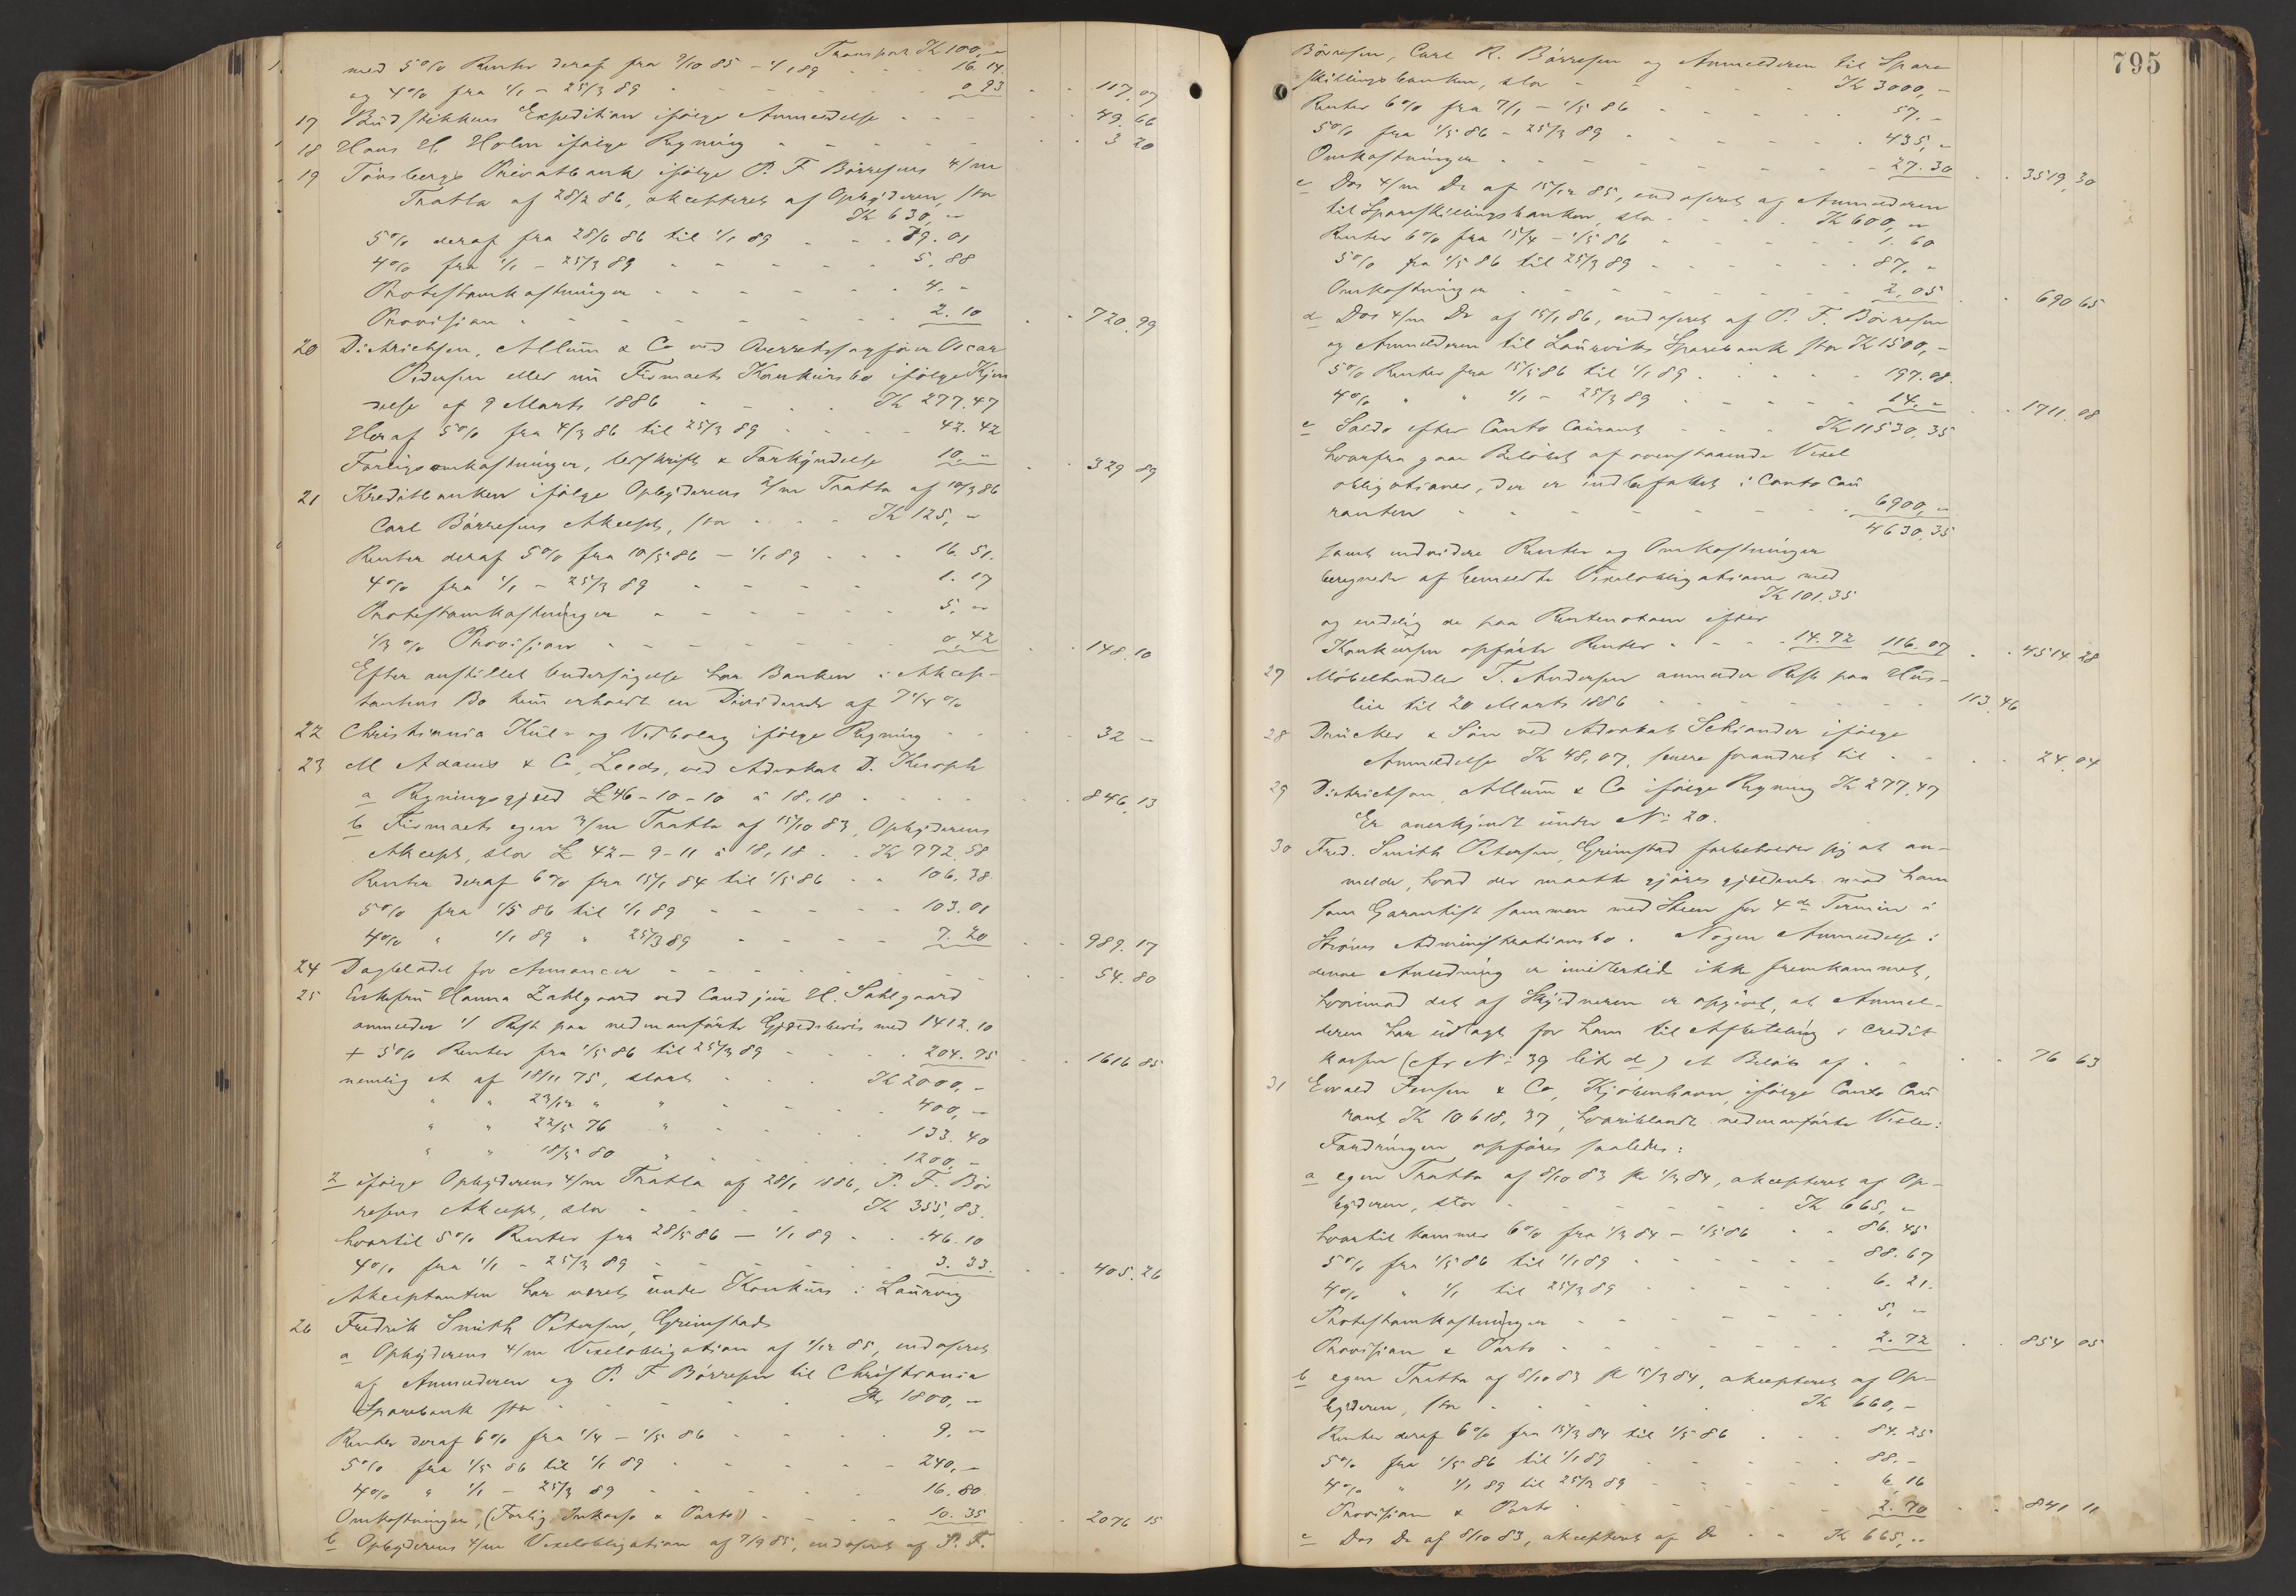 Transport Kr 100,-
med 5% Renter deraf fra 9/10 85 - 1/1 89 16.14.
og 4% fra 1/1 - 25/3 89 0.93 117.07
17 Budstikkens Expedition ifølge Anmeldelse 49.66
18 Hans H. Holm ifølge Regning 3 20
19 Tönsbergs Privatbank ifølge P. F Börresens 4/m
Tratta af 28/2 86, akcepteret af Opbyderen, stor
Kr 630,-
5% deraf fra 28/6 86 til 1/1 89 79.01
4% fra 1/1 - 25/3 89 5.88
Protestomkostninger 4.-
Provision 2.10 720.99
20 Dietrichson, Allum & Co ved Overretssagfører Oscar
Pedersen eller nu Firmaets Konkursbo ifølge Kjen
delse af 9 Marts 1886 Kr 277.47
Heraf 5% fra 4/3 86 til 25/3 89 42.42
Forligsomkostninger, beskrift & Forkyndelse 10,- 329 89
21 Kreditbanken ifølge Opbyderens 2/m Tratta af 10/3 86
Carl Börresens Akcept, stor Kr 125,-
Renter deraf 5% fra 10/5 86 - 1/1 89 16.51.
4% fra 1/1 - 25/3 89 1.17
Protestomkostninger 5,-
1/3 % Provision 0,42 148.10
Efter anstillet Undersøgelse har Banken i Akcep-
tantens Bo kun erholdt en Dividende af 7 1/4 %
22 Christiania Kul- og Vedbolag ifølge Regning 32 -
23 M Adams & Co, Leeds, ved Advokat D. Knoph
a Regningsgjæld £ 46-10-10 à 18.18 846,13
b Firmaets egen 3/m Tratta af 15/10 83, Opbyderens
Akcept, stor £ 42-9-11 à 18,18 Kr 772.58
Renter deraf 6% fra 15/1 84 til 1/5 86 106.38
5% fra 1/5 86 til 1/1 89 103.01
4% " 1/1 89 " 25/3 89 7.20 989.17
24 Dagbladet for Annoncer 54.80
25 Enkefru Hanna Zahlgaard ved Cand jur H. Sahlgaard
anmelder 1/ Rest paa nedenanførte Gjældsbevis med 1412.10
+ 5% Renter fra 1/5 86 til 25/3 89 204.75 1616 85
nemlig et af 18/11 75, stort Kr 2000,-
" " 23/12 " " 400,-
" " 22/5 76 " 133.40
" " 18/5 80 " 1200,-
2 ifølge Opbyderens 4/m Tratta af 28/1 1886, P. F. Bör
resens Akcept, stor Kr 355,83.
hvortil 5% Renter fra 28/5 86 - 1/1 89 46.10
4% fra 1/1 - 25/3 89 3.33. 405.26
Akceptanten har været under Konkurs i Laurvig
26 Fredrik Smith Petersen, Grimstad
a Opbyderens 4/m Vexelobligation af 1/12 85, endosseret
af Anmelderen og P. F Börresen til Christiania
Sparebank stor Kr 1800,-
Renter deraf 6% fra 1/4 - 1/5 86 9,-
5% fra 1/5 86 til 1/1 89 240,-
4% " 1/1 - 25/3 89 16.80
Omkostninger, (Forlig Inkasso & Porto) 10.35 2076 15
b Opbyderens 4/m Vexelobligation af 7/9 85, endosseret af P. F.
795
Börresen, Carl R. Börresen og Anmelderen til Spare
skillingsbanken, stor Kr 3000,-
Renter 6% fra 7/1 - 1/5 86 57,-
5% fra 1/5 86 - 25/3 89 435,-
Omkostninger 27.30 3519,30
c Dos 4/m Do af 15/12 85, endosseret af Anmelderen
til Spareskillingsbanken, stor Kr 600,-
Renter 6% fra 15/4 - 1/5 86 1.60
5% fra 1/5 86 til 25/3 89 87.-
Omkostninger 2,05 690 65
d Dos 4/m Do af 15/1 86, endosseret af P. F. Börresen
og Anmelderen til Laurviks Sparebank stor Kr 1500,-
5% Renter fra 15/5 86 til 1/1 89 197.08
4% " " 1/1 - 25/3 89 14.- 1711.08
e Saldo efter Conto Courant Kr 11530,35
hvorfra gaar Beløbet af ovenstaaende Vexel
obligationer, der er indbefattet i Conto Cou
ranten 6900,-
4630,35
samt endvidere Renter og Omkostninger
beregnede af bemeldte Vexelobligationer med
Kr 101.35
og endelig de paa Rentenotaen efter
Konkursen opførte Renter 14.72 116.07 4514.28
27 Møbelhandler T. Andersen anmelder Rest paa Hus-
leie til 20 Marts 1886 113.46
28 Drucker & Sön ved Advokat Schiander ifølge
Anmeldelse Kr 48,07, senere forandret til 24,04
29 Dietrichson, Allum & Co ifølge Regning Kr 277,47
Er anerkjendt under No 20.
30 Fred. Smith Petersen, Grimstad forbeholder sig at an-
melde, hvad der maatte gjøres gjældende mod ham
som Garantist sammen med Steen for 4de Termin i
Ströms Administrationsbo. Nogen Anmeldelse i
denne Anledning er imidlertid ikke fremkommet,
hvorimod det af Skyldneren er opgivet, at Anmel-
deren har udlagt for ham til Afbetaling i Credit
kassen (cfr No 39 litr d) et Beløb af 76 63
31 Ewald Jensen & Co, Kjøbenhavn, ifølge Conto Cou
rant Kr 10618,37, hvoriblandt nedenanførte Vexler.
Fordringen opføres saaledes:
a egen Tratta af 8/10 83 pr 1/3 84, akcepteret af Op-
byderen, stor Kr 665,-
hvortil kommer 6% fra 1/3 84 - 1/5 86 86.45
5% fra 1/5 86 til 1/1 89 88.67
4% " 1/1 til 25/3 89 6.21.
Protestomkostninger 5,-
Provision & Porto 2.72 854 05
b egen Tratta af 8/10 83 pr 15/3 84, akcepteret af Op-
byderen, stor Kr 660,-
Renter deraf 6% fra 15/3 84 til 1/5 86 84.25
5% fra 1/5 86 til 1/1 89 88.-
4% " 1/1 89 til 25/3 89 6.16
Provision & Porto 2.70 841 11
c Dos Do af 8/10 83, akcepteret af Do Kr 665,-